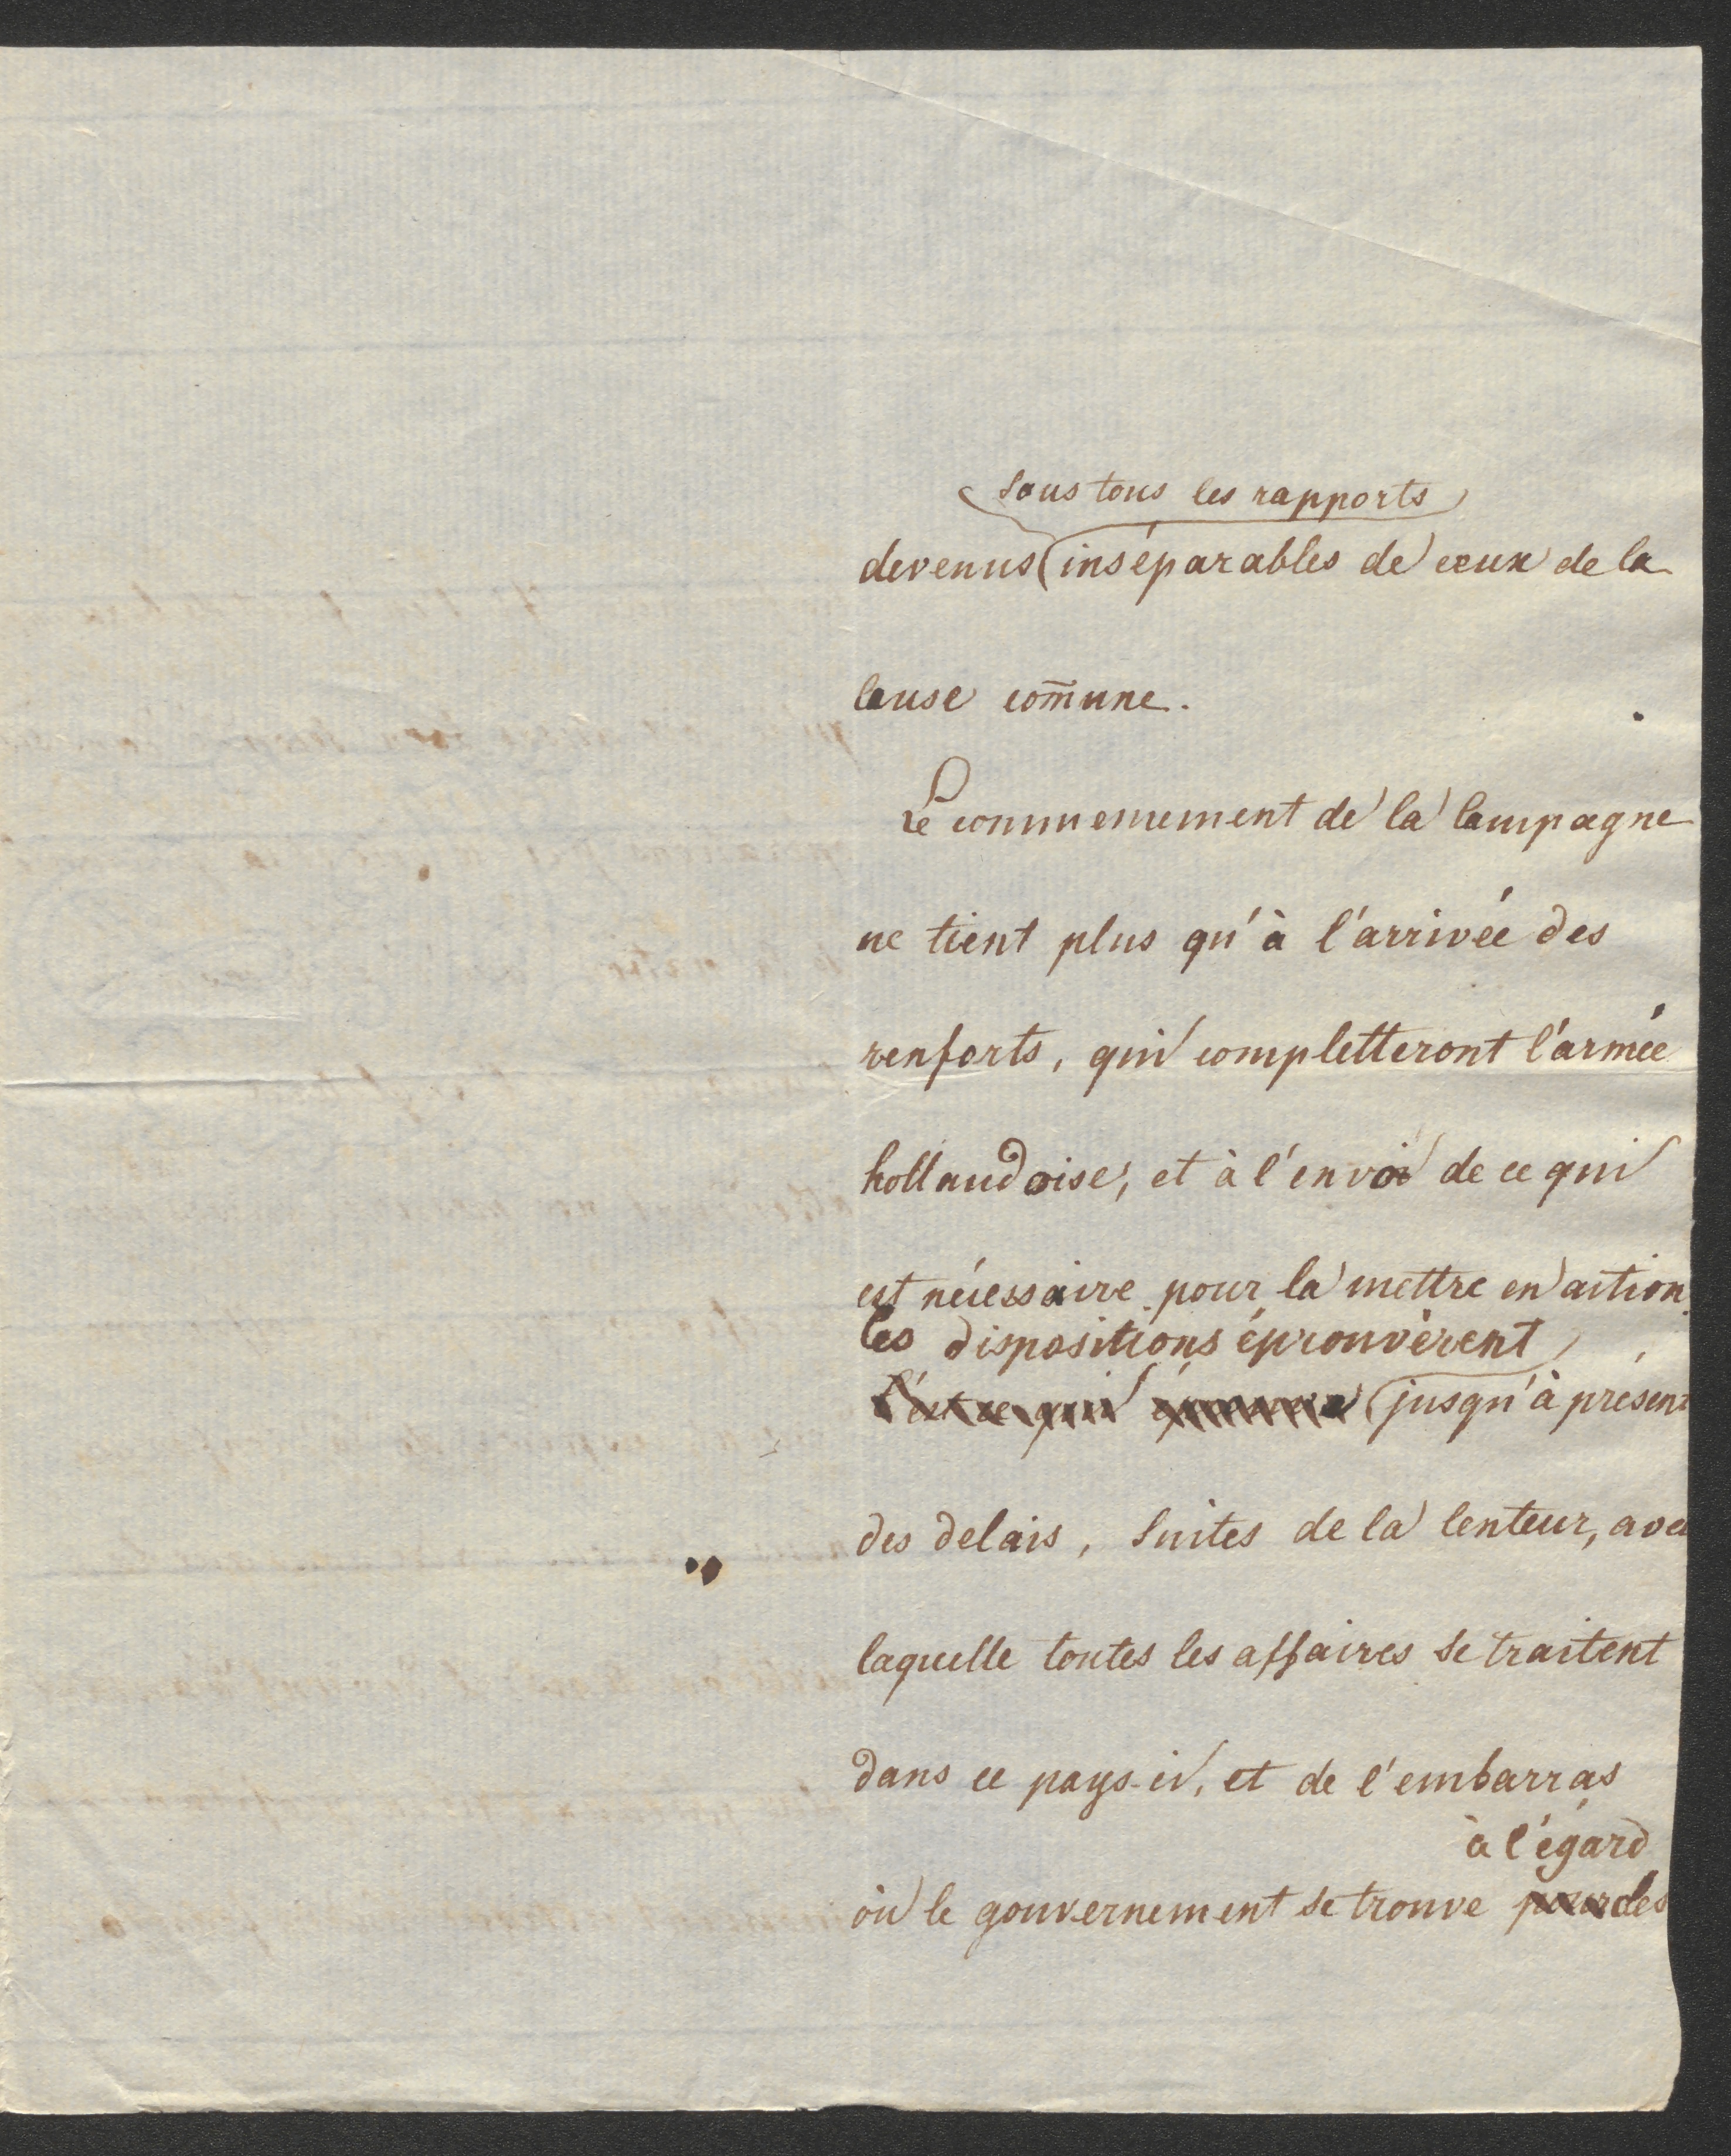 sous tous les rapports
devenus inséparables de ceux de la
Cause com̄une.
Le commencement de la Campagne
ne tient plus qu'à l'arrivée des
renforts, qui completteront l'armée
hollandoise, et à l'envoi de ce qui
est nécessaire pour la mettre en action.
Ces dispositions éprouvèrent
C'est ce qui jusqu'à présent
des delais, suites de la lenteur, avec
laquelle toutes les affaires se traitent
dans ce pays-ci, et de l'embarras
à l'égard
où le gouvernement se trouve pour des